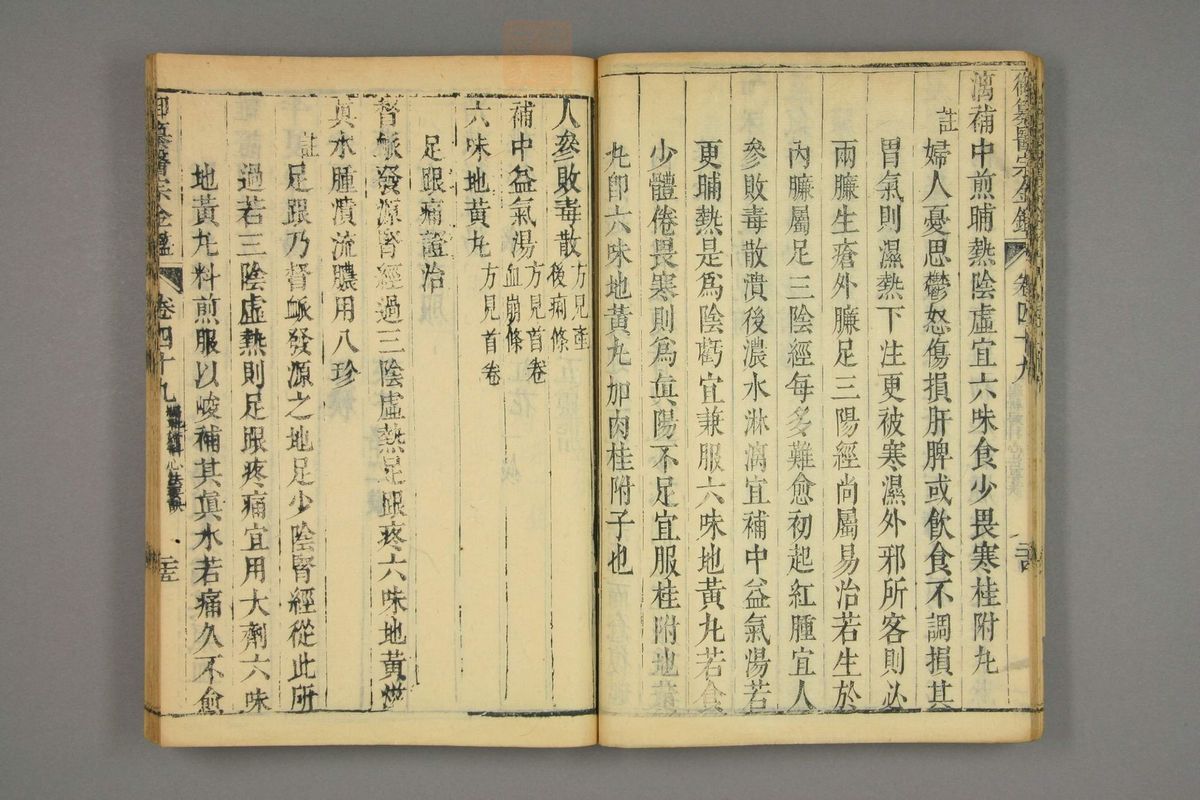 御纂醫宗金鑑 卷四十九 二十四
漓補中煎晡熱陰虛宜六味食少畏寒桂附丸
註
婦人憂思鬱怒傷損肝脾或飲食不調損其
胃氣則濕熱下注更被寒濕外邪所客則必
兩臁生瘡外臁足三陽經尚屬易治若生於
內臁屬足三陰經每多難愈初起紅腫宜人
參敗毒散潰後濃水淋漓宜補中益氣湯若
更晡熱是爲陰虧宜兼服六味地黃丸若食
少體倦畏寒則爲眞陽不足宜服桂附地黃
丸卽六味地黃丸加肉桂附子也
人參敗毒散 方見產後痢條
補中益氣湯 方見首卷血崩條
六味地黃丸 方見首卷
足跟痛證治
督脈發源腎經過三陰虛熱足跟疼六味地黃滋
眞水腫潰流膿用八珍
註
足跟乃督脈發源之地足少陰腎經從此所
過若三陰虛熱則足跟疼痛宜用大劑六味
地黃丸料煎服以峻補其眞水若痛久不愈
御纂醫宗金鑑 卷四十九 心法要訣 二十五